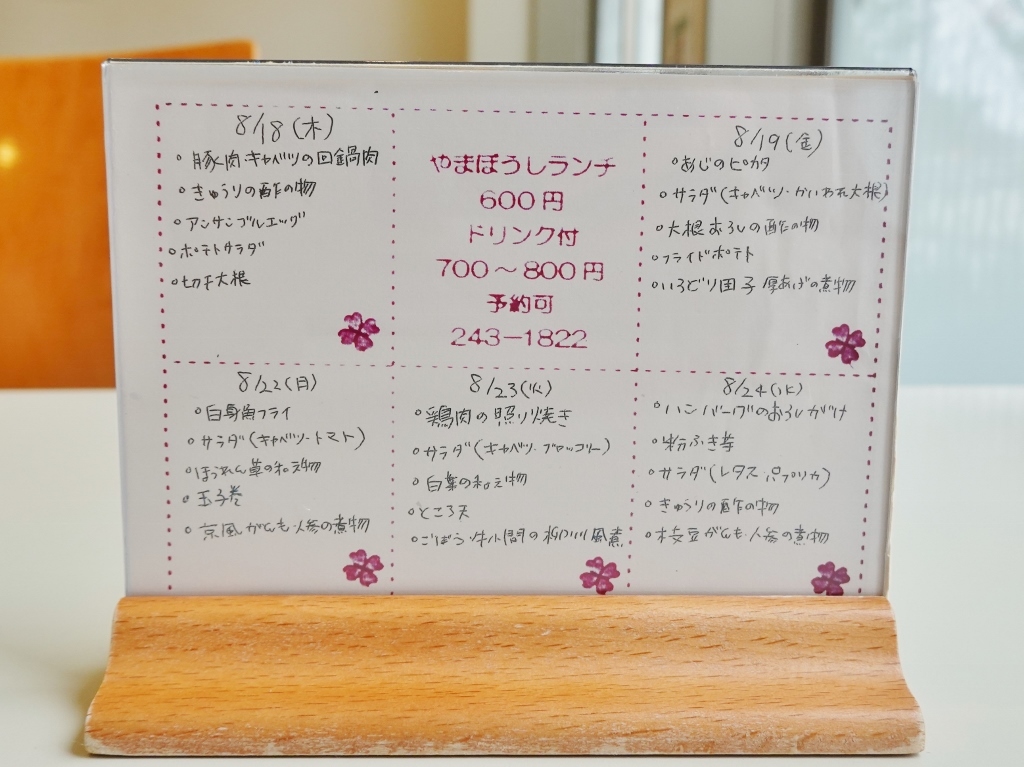 8/18(木)
豚肉キャベツの回鍋肉
きゅうりの酢の物
アンサンブルエッグ
ポテトサラダ
切干大根
やまぼうしランチ
600円
ドリンク付
700〜800円
予約可
243-1822
8/19(金)
あじのピカタ
サラダ(キャベツ・かいわれ大根)
大根おろしの酢の物
フライドポテト
いろどり団子 厚あげの煮物
8/22(月)
白身魚フライ
サラダ(キャベツ・トマト)
ほうれん草の和え物
玉子巻
京風がんも・人参の煮物
8/23(火)
鶏肉の照り焼き
サラダ(キャベツ・ブロッコリー)
白菜の和え物
ところ天
ごぼう・牛小間の柳川風煮
8/24(水)
ハンバーグのおろしがけ
粉ふき芋
サラダ(レタス・パプリカ)
きゅうりの酢の物
枝豆がんも・人参の煮物